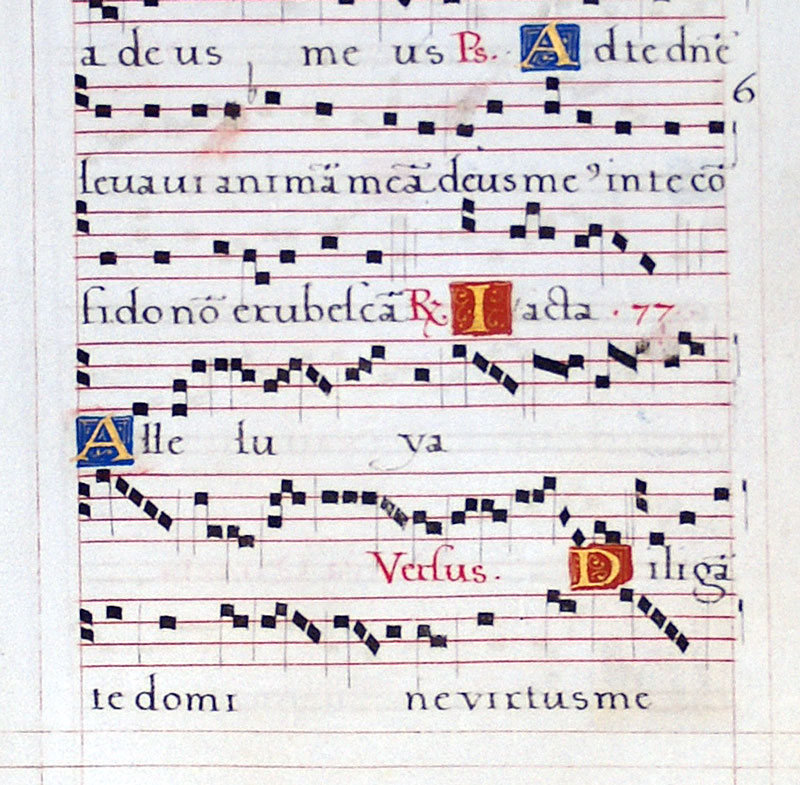 a deus me us Ps. Ad te dn̄e
6
leuaui animā meā deus me⁹ in te cō
fido nō erubescā ℟. Iacta · 77 ·
Alle lu ya
Versus. Diligā
te domi ne virtus me